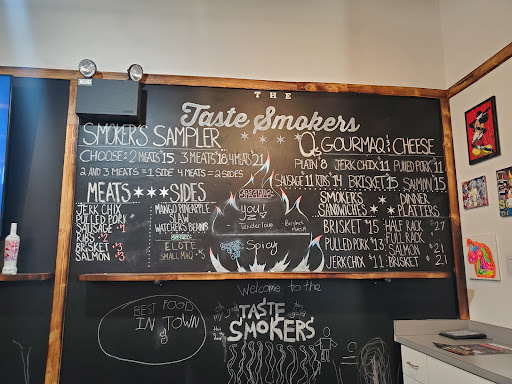 THE
Taste Smokers
SMOKER'S SAMPLER
CHOOSE: 2 MEATS $15 3 MEATS $18 4 MEATS $21
2 AND 3 MEATS = 1 SIDE 4 MEATS = 2 SIDES
MEATS
JERK CHIX
PULLED PORK
SAUSAGE $1
RIBS $2
BRISKET $3
SALMON $3
SIDES
MANGO PINEAPPLE
SLAW
WATCHER'S BEANS
ELOTE
SMALL MAQ $5
Tenderloin
Brisket
Spicy
Q's GOURMAQ & CHEESE
PLAIN $8 JERK CHIX $11 PULLED PORK $11
SAUSAGE $11 RIBS $14 BRISKET $15 SALMON $15
SMOKERS
SANDWICHES
BRISKET $15
PULLED PORK $13
JERK CHIX $11
DINNER
PLATTERS
HALF RACK $27
FULL RACK
SALMON $21
BRISKET $21
Welcome to the
TASTE
SMOKERS
BEST FOOD
IN TOWN